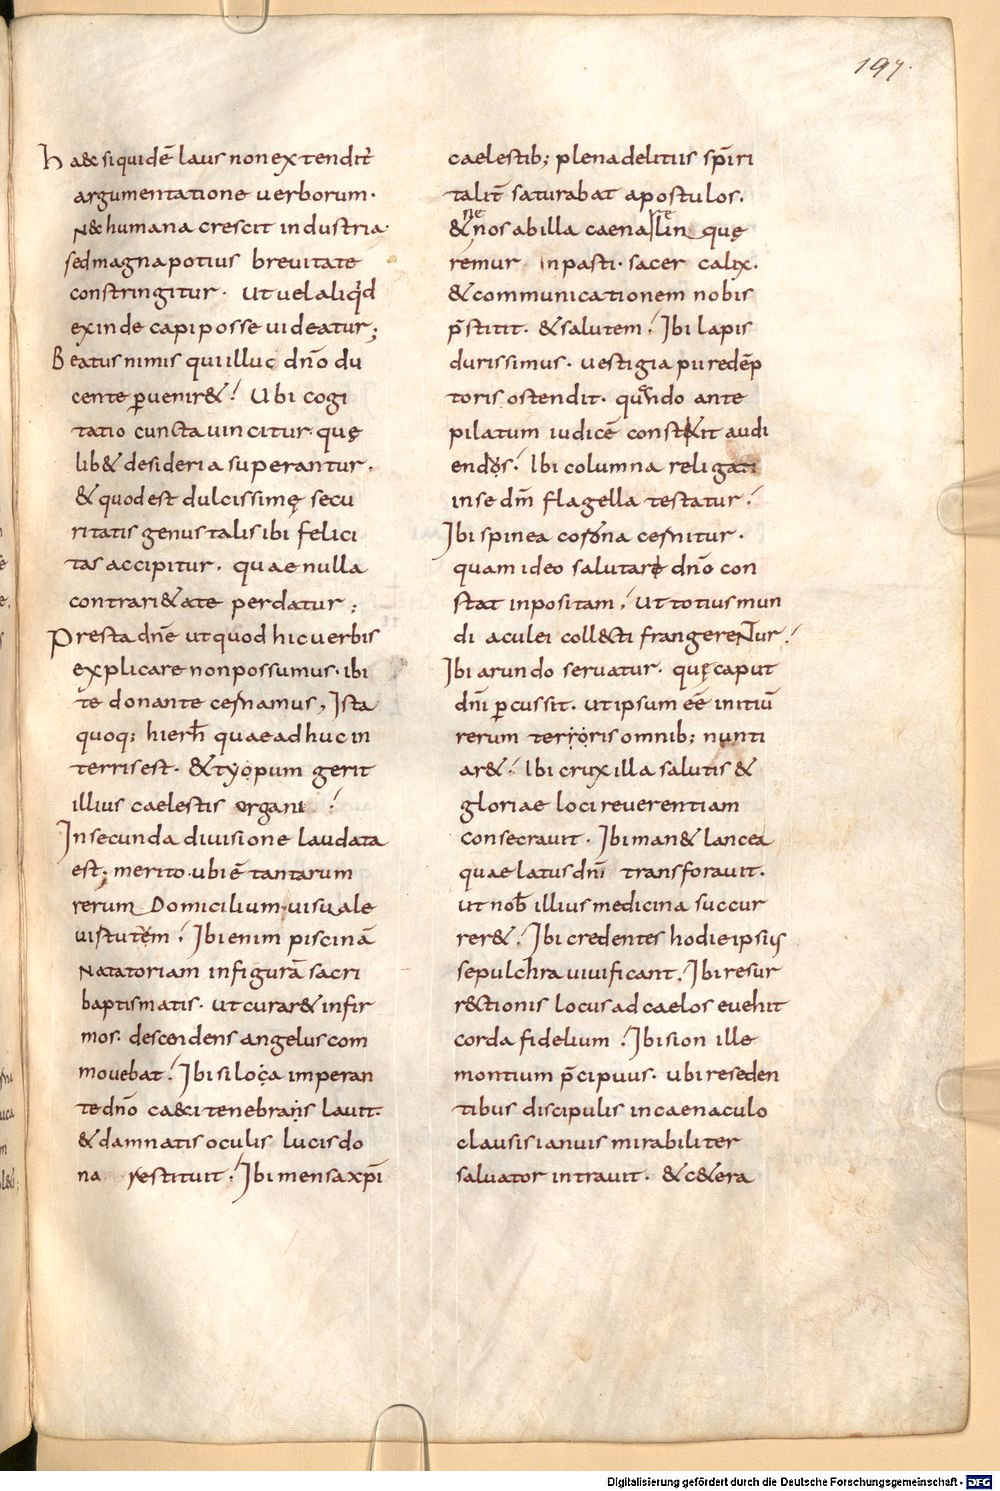 197.
haec siquidē laus non extendit̄
argumentatione uerborum·
Nec humana crescit industria·
sed magna potius breuitate
constringitur· Ut uel aliqd
exinde capi posse uideatur;
Beatus nimis qui illuc dn̄o du
cente ꝑuenir&! Ubi cogi
tatio cuncta uincitur quę
lib& desideria superantur.
& quod est dulcissimę secu
ritatis genus talis ibi felici
tas accipitur. quae nulla
contrari&ate perdatur;
Presta dn̄e ut quod hic uerbis
explicare non possumus. ibi
te donante cernamus, Ista
quoq; hierħ quae adhuc in
terris est. & tyopum gerit
illius caelestis organi!
In secunda diuisione laudata
est. merito. ubi ē tantarum
rerum Domicilium uisuale
uistutem! Ibi enim piscinā
Natatoriam in figurā sacri
baptismatis. ut curar& infir
mos. descendens angelus com
mouebat! Ibi siloca imperan
te dn̄o caeci tenebrans lauit.
& damnatis oculis lucis do
na restituit! Ibi mensa xp̄i
caelestib; plena delitiis sp̄iri
talit̄ saturabat apostulos.
ne
& nos ab illa caena lin quę
remur inpasti. sacer calix.
& communicationem nobis
p̄stitit. & salutem! Ibi lapis
durissimus. uestigia pii redēp
toris ostendit. quando ante
pilatum iudicē constitit audi
endos! Ibi columna religati
in se dn̄i flagella testatur!
Ibi spinea corona cernitur.
quam ideo salutare dn̄o con
stat inpositam! Ut totius mun
di aculei collecti frangerentur!
Ibi arundo seruatur. quę caput
dn̄i ꝑcussit. ut ipsum eē initiū
rerum terroris omnib; nunti
ar&! Ibi crux illa salutis &
gloriae loci reuerentiam
consecrauit. Ibi man& lancea
quae latus dn̄i transforauit.
ut nob̄ illius medicina succur
rer&! Ibi credentes hodie ipsius
sepulchra uiuificant, Ibi resur
rectionis locus ad caelos euehit
corda fidelium! Ibi sion ille
montium p̄cipuus. ubi reseden
tibus discipulis in caenaculo
clausis ianuis mirabiliter
saluator intrauit. & cetera
Digitalisierung gefördert durch die Deutsche Forschungsgemeinschaft - DFG